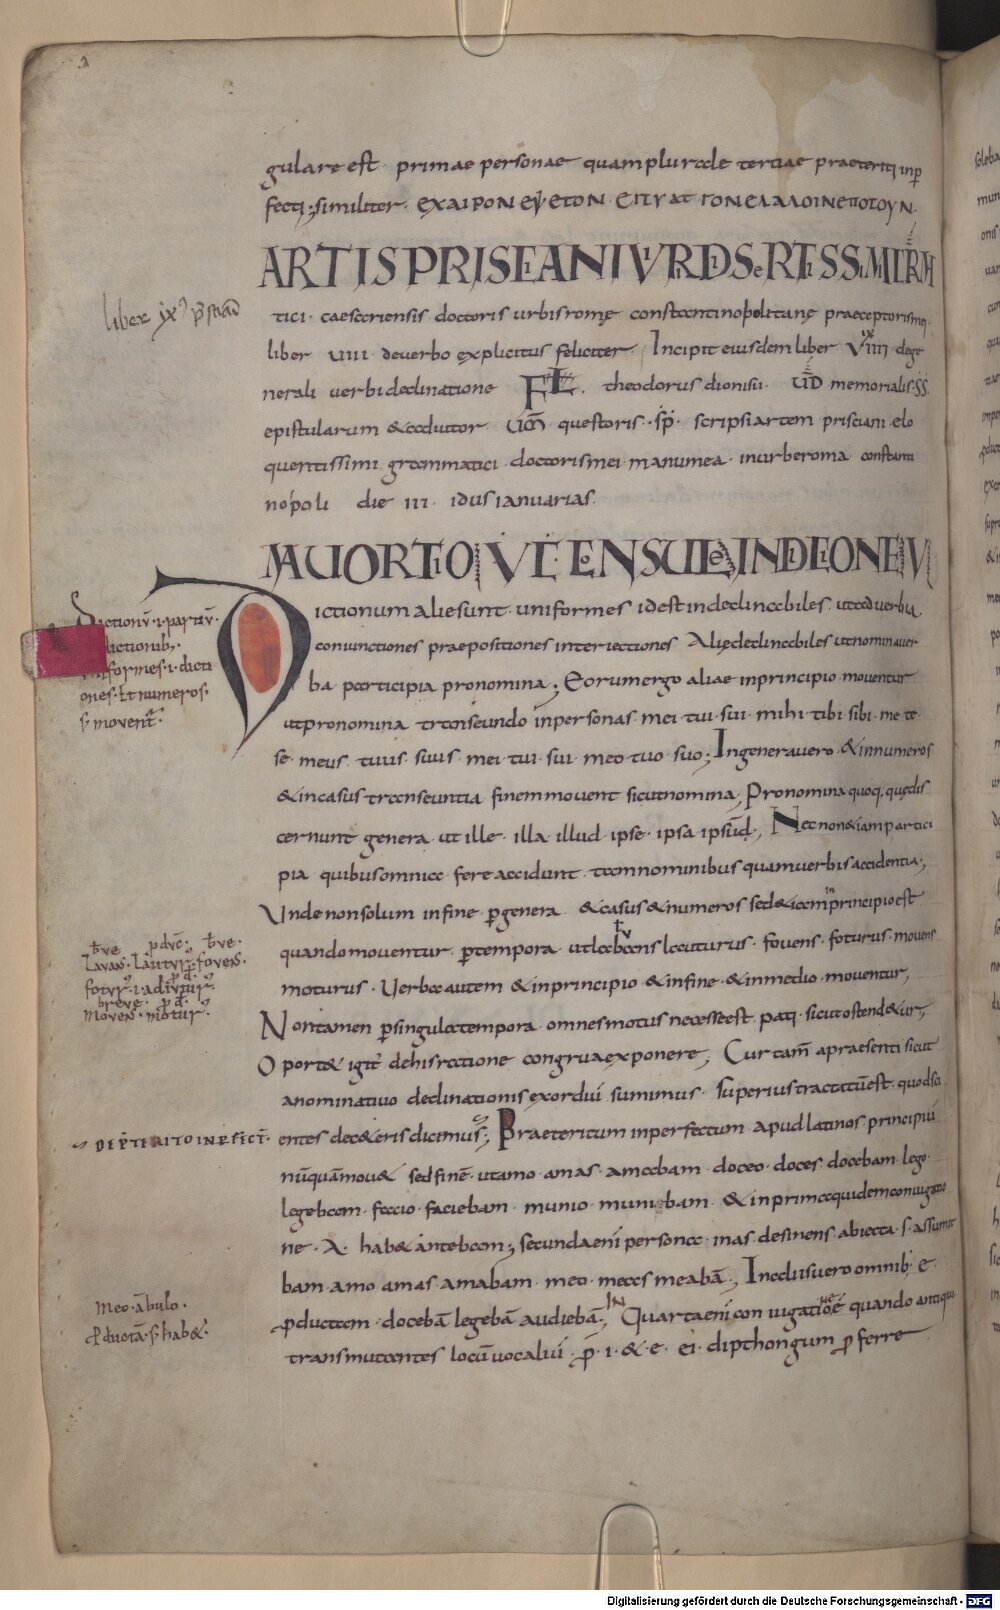 gulare est. primae personae quam plurale tertiae praeteriti inp
fecti; similiter. ΕΧΑΙΡΟΝ
liber ix
tici. caesariensis doctoris urbis romę constantinopolitanę praeceptoris mei.
liber VIII de verbo explicitus feliciter Incipit eiusdem liber VIIII de ge
nerali verbi declinatione FL. theodorus dionisii. memorialis. SS.
epistularum & adiutor questoris. scripsi artem prisciani elo
quentissimi grammatici. doctoris mei manu mea. in urbe roma constanti
nopoli die III. idus ianuarias.
Dictionū. i. partiū.
formes. i. dicti
ones. Et numeros.
movent
Dictionum aliae sunt uniformes id est indeclinabiles ut adverbia.
coniunctiones praepositiones interiectiones Alię declinabiles ut nomina ver
ba participia pronomina; Eorum ergo aliae in principio moventur
ut pronomina transeundo in personas mei tui. sui. mihi tibi. sibi. me te
se. meus tuus. suus mei. tui. sui. meo tuo suo; In genera vero & in numeros
& in casus transeuntia finem movent sicut nomina, Pronomina quoq. quę dis
cernunt genera ut ille. illa. illud. ipse. ipsa ipsud, Nec non & iam partici
pia quibus omnia fere accidunt tam nominibus quam verbis accidentia;
Unde non solum in fine p genera & casus & numeros sed & iam in principio est
quando moventur. p tempora ut labans lavaturus. fovens. foturus. movens
moturus. Verba autem & in principio & in fine & in medio moventur,
bve pduc bve.
Lavans. Lautur. foven.
fotur. i. adiutur.
breve. pd.
Moven. motur.
Non tamen p singula tempora omnes motus necesse est pati. sicut ostend&ur,
Oport& igit de his ratione congrua exponere, Cur tam a praesenti sicut
a nominativo declinationis exordui sumimus. superius tractatū est. quod sci
entes dec&eris dicimus; Praeteritum inperfectum apud latinos principiū
nūquā mov& sed finē. ut amo amas. amabam doceo. doces docebam. lego.
legebam. facio. faciebam munio muniebam. & in prima quidem coniugatio
ne. A. hab& ante bam; secunda enī persona in as desinens abiecta. s. assumit
bam. amo amas amabam. meo meas meabā; In aliis vero omnib. E
pductam. docebā legebā audiebā; IN Quarta enī coniugatione quando antiqui
Meo. ābulo.
pductā. hab&.
transmutantes locū vocaliū. p. i. & e. ei. dipthongum p ferre
Digitalisierung gefördert durch die Deutsche Forschungsgemeinschaft - DFG